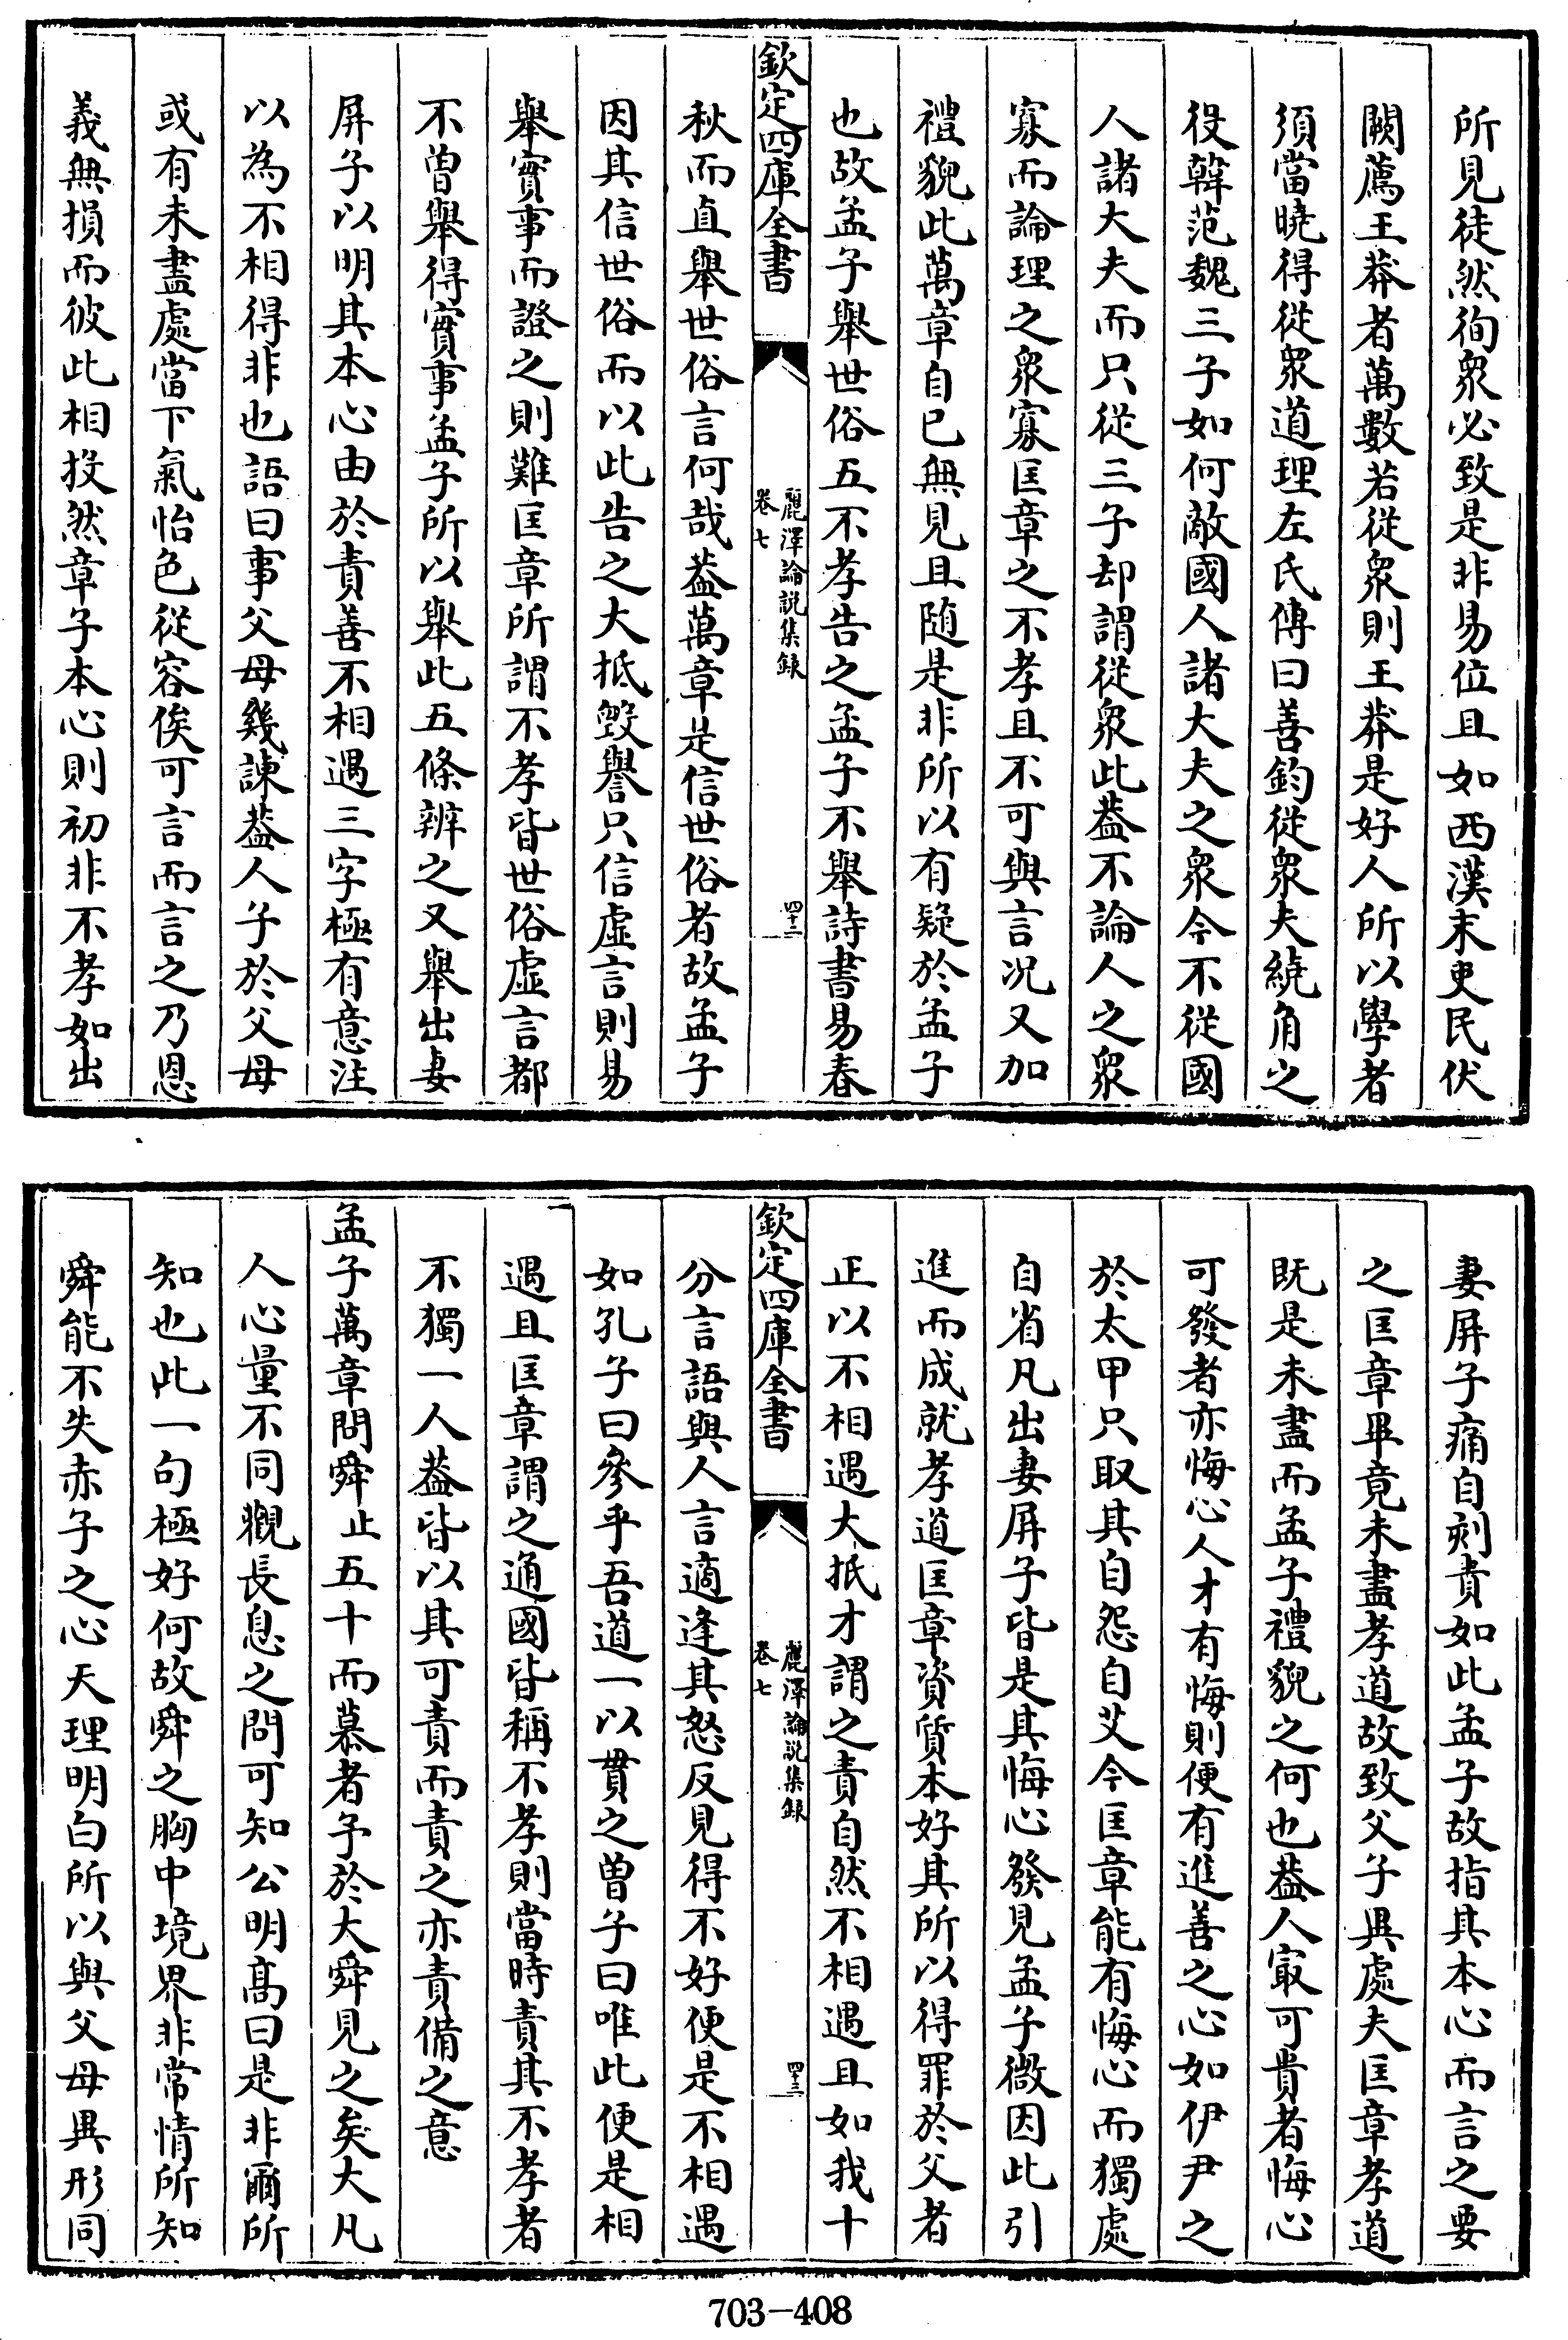 所見徒然徇衆必致是非易位且如西漢末吏民伏
闕薦王莽者萬數若從衆則王莽是好人所以學者
須當曉得從衆道理左氏傳曰善鈞從衆夫繞角之
役韓范魏三子如何敵國人諸大夫之衆今不從國
人諸大夫而只從三子却謂從衆此葢不論人之衆
寡而論理之衆寡匡章之不孝且不可與言况又加
禮貌此萬章自已無見且随是非所以有疑於孟子
也故孟子舉世俗五不孝告之孟子不舉詩書易春
欽定四庫全書
麗澤論說集録
卷七
四十二
秋而直舉世俗言何哉葢萬章是信世俗者故孟子
因其信世俗而以此告之大抵毁譽只信虛言則易
舉實事而證之則難匡章所謂不孝皆世俗虛言都
不曾舉得實事孟子所以舉此五條辨之又舉出妻
屏子以明其本心由於責善不相遇三字極有意注
以為不相得非也語曰事父母幾諫葢人子於父母
或有未盡處當下氣怡色從容俟可言而言之乃恩
義無損而彼此相投然章子本心則初非不孝如出
妻屏子痛自刻責如此孟子故指其本心而言之要
之匡章畢竟未盡孝道故致父子異處夫匡章孝道
既是未盡而孟子禮貌之何也葢人㝡可貴者悔心
可發者亦悔心人才有悔則便有進善之心如伊尹之
於太甲只取其自怨自艾今匡章能有悔心而獨處
自省凡出妻屏子皆是其悔心發見孟子微因此引
進而成就孝道匡章資質本好其所以得罪於父者
正以不相遇大抵才謂之責自然不相遇且如我十
欽定四庫全書
麗澤論説集録
卷七
四十三
分言語與人言適逢其怒反見得不好便是不相遇
如孔子曰參乎吾道一以貫之曾子曰唯此便是相
遇且匡章謂之通國皆稱不孝則當時責其不孝者
不獨一人葢皆以其可責而責之亦責備之意
孟子萬章問舜止五十而慕者予於大舜見之矣大凡
人心量不同觀長息之問可知公明高曰是非爾所
知也此一句極好何故舜之胸中境界非常情所知
舜能不失赤子之心天理明白所以與父母異形同
703-408